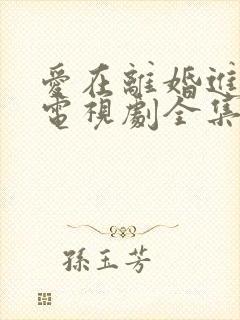 愛在離婚進
電視劇全集
孫玉芳